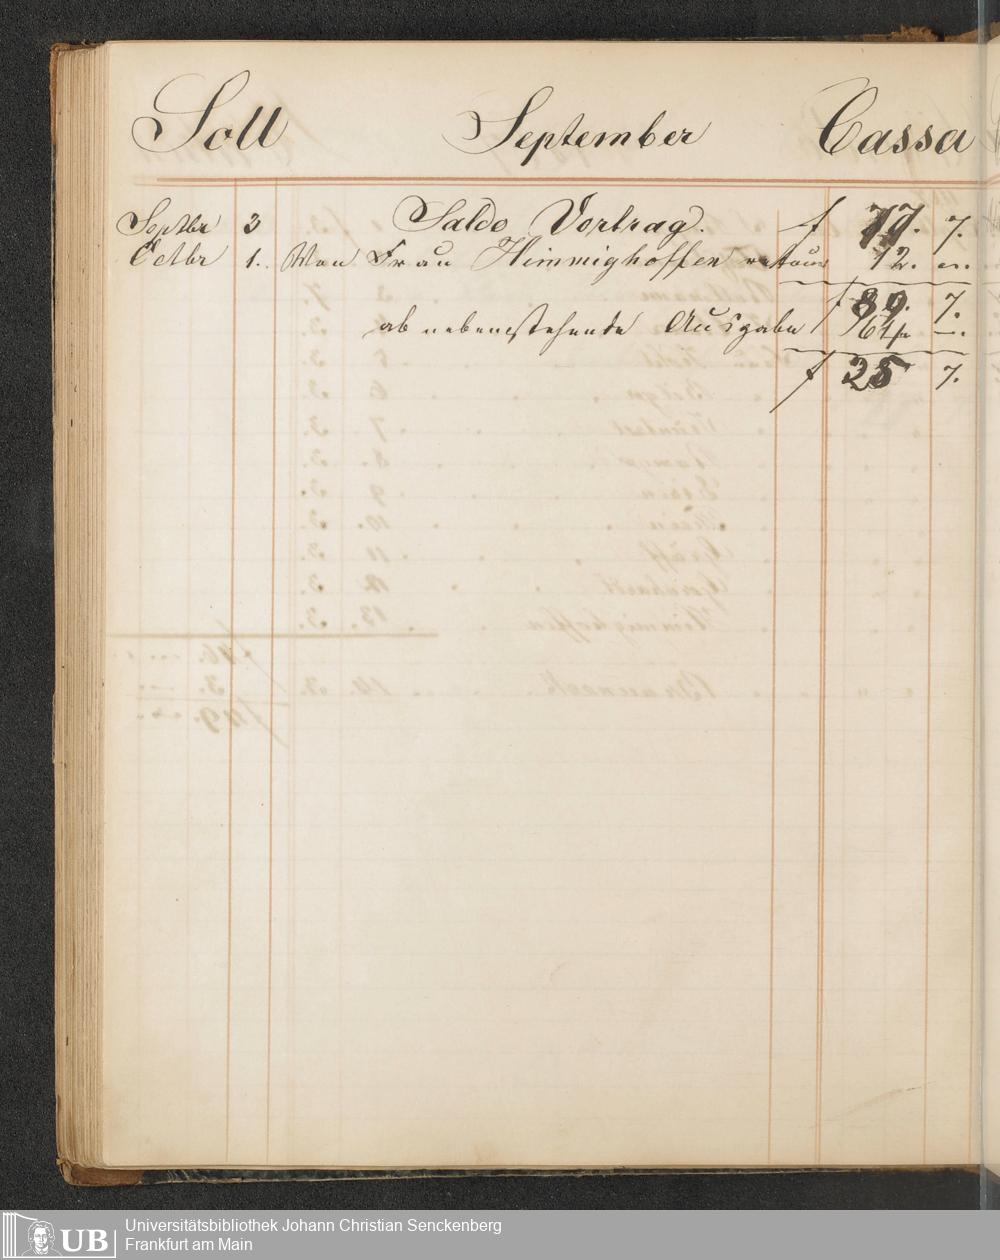 Soll September Cassa
Septbr 3 Saldo Vortrag. f 77. 7.
Octbr 1. Von Frau Himmighoffen retour 12. „.
f 89. 7.
ab nebenstehende Ausgabe 64 —.
f 25 7.
UB Universitätsbibliothek Johann Christian Senckenberg
Frankfurt am Main